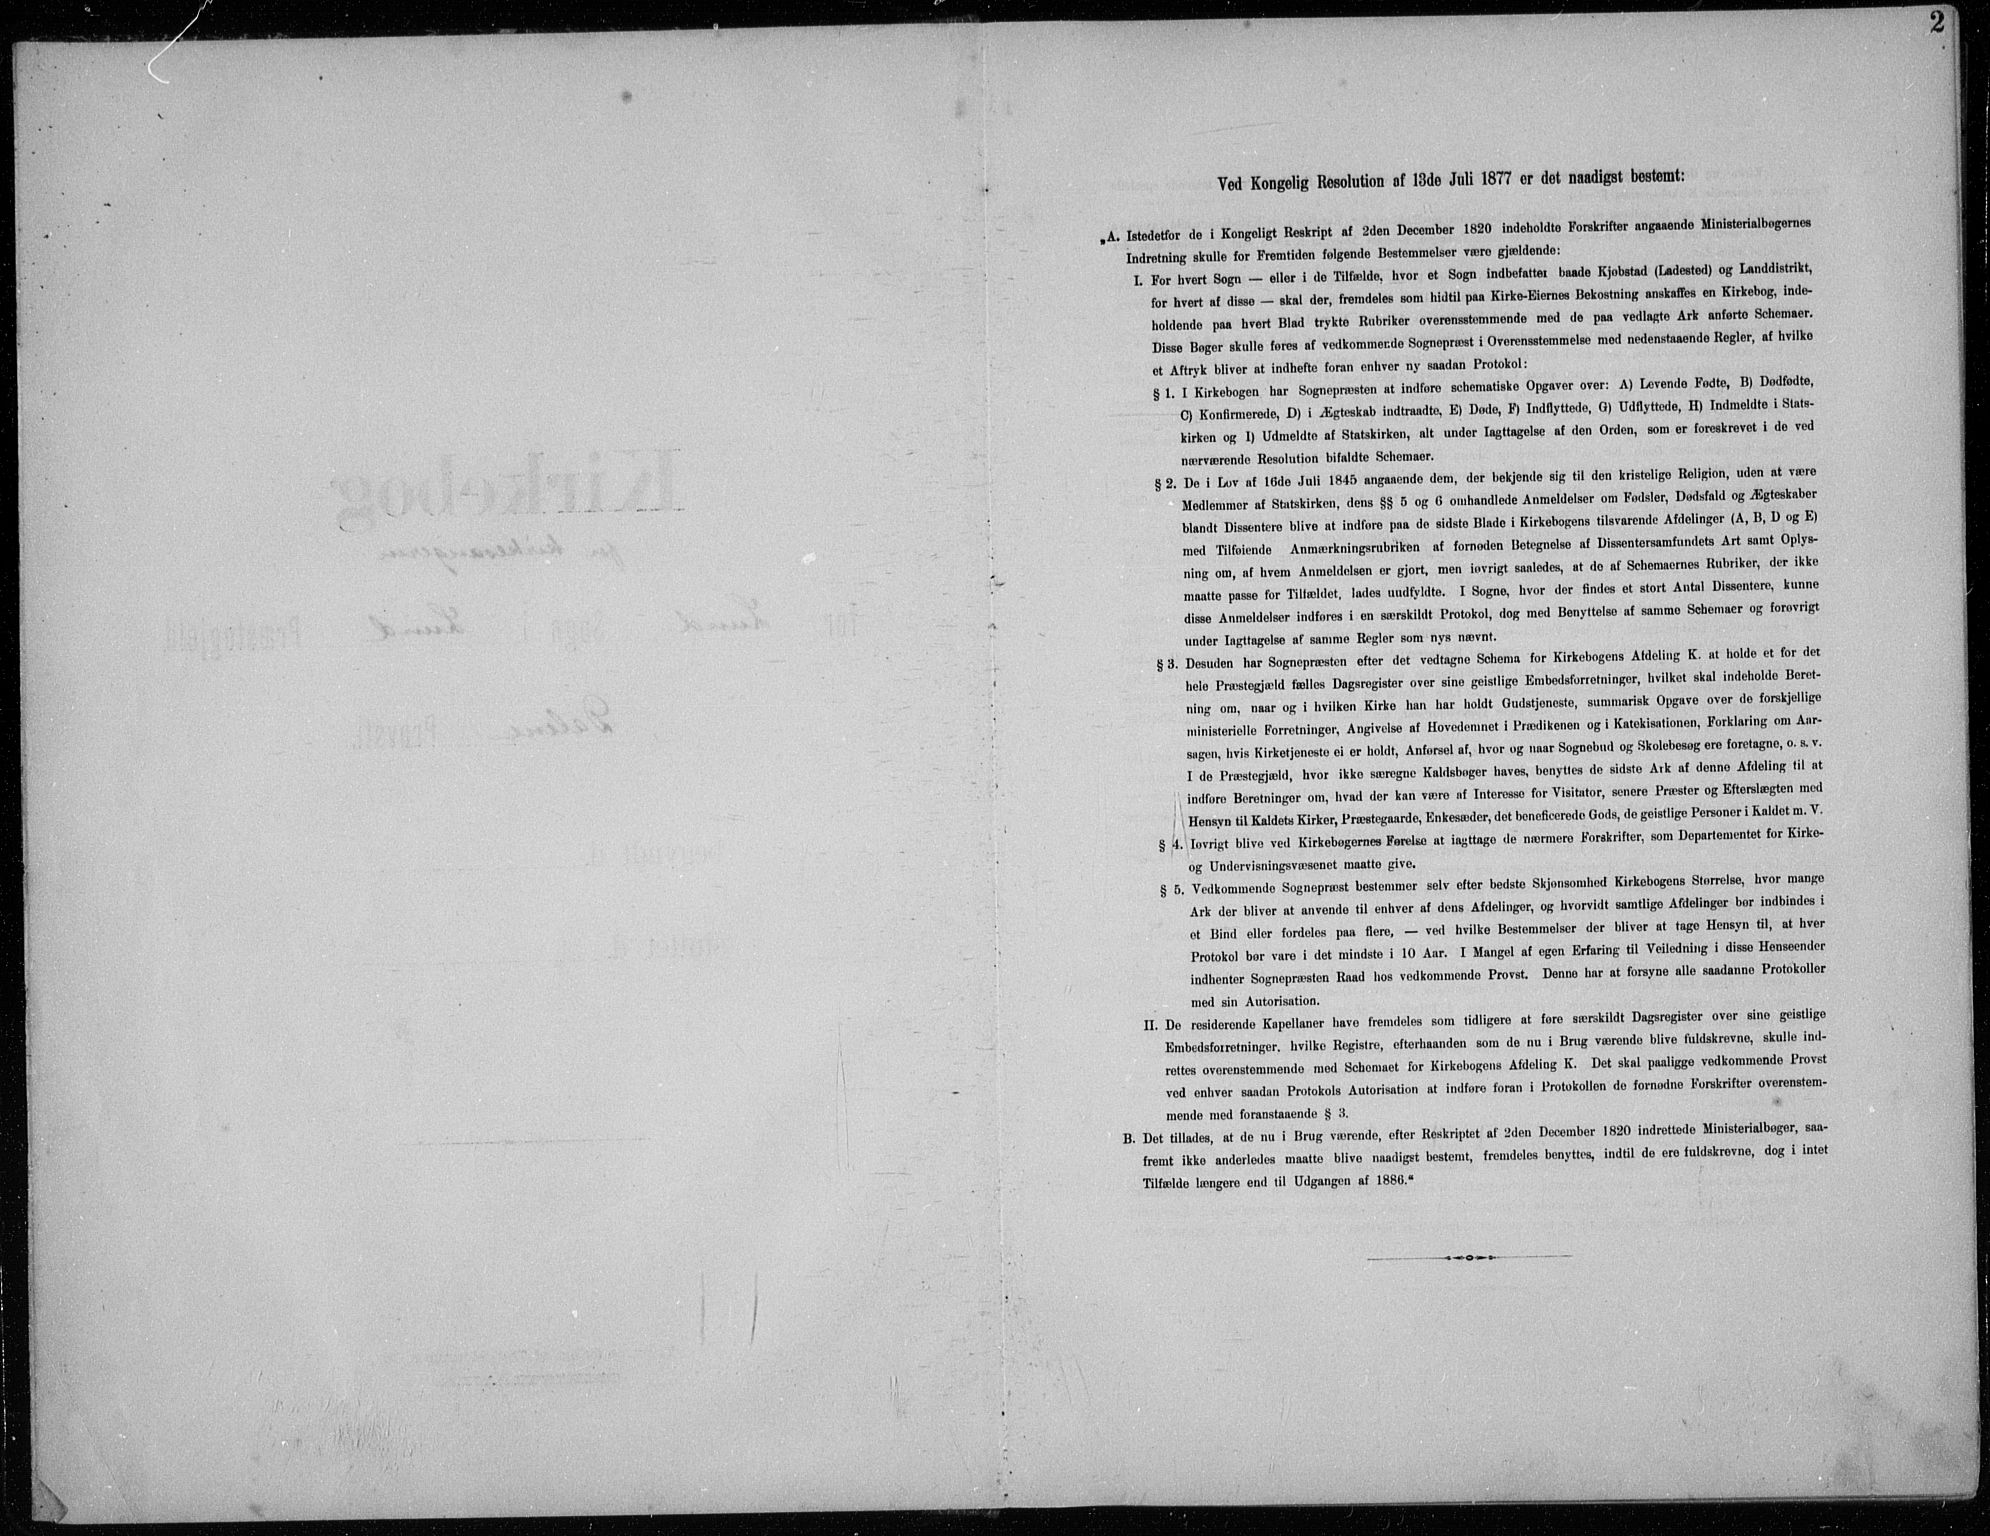 2
Ved Kongelig Resolution af 13de Juli 1877 er det naadigst bestemt:
„A. Istedetfor de i Kongeligt Reskript af 2den December 1820 indeholdte Forskrifter angaaende Ministerialbøgernes
Indretning skulle for Fremtiden følgende Bestemmelser være gjældende:
I. For hvert Sogn — eller i de Tilfælde, hvor et Sogn indbefatter baade Kjøbstad (Ladested) og Landdistrikt,
for hvert af disse — skal der, fremdeles som hidtil paa Kirke-Eiernes Bekostning anskaffes en Kirkebog, inde-
holdende paa hvert Blad trykte Rubriker overensstemmende med de paa vedlagte Ark anførte Schemaer.
Disse Bøger skulle føres af vedkommende Sognepræst i Overensstemmelse med nedenstaaende Regler, af hvilke
et Aftryk bliver at indhefte foran enhver ny saadan Protokol:
§ 1. I Kirkebogen har Sognepræsten at indføre schematiske Opgaver over: A) Levende Fødte, B) Dødfødte,
C) Konfirmerede, D) i Ægteskab indtraadte, E) Døde, F) Indflyttede, G) Udflyttede, H) Indmeldte i Stats-
kirken og I) Udmeldte af Statskirken, alt under Iagttagelse af den Orden, som er foreskrevet i de ved
nærværende Resolution bifaldte Schemaer.
§ 2. De i Lov af 16de Juli 1845 angaaende dem, der bekjende sig til den kristelige Religion, uden at være
Medlemmer af Statskirken, dens §§ 5 og 6 omhandlede Anmeldelser om Fødsler, Dødsfald og Ægteskaber
blandt Dissentere blive at indføre paa de sidste Blade i Kirkebogens tilsvarende Afdelinger (A, B, D og E)
med Tilføiende Anmærkningsrubriken af fornøden Betegnelse af Dissentersamfundets Art samt Oplys-
ning om, af hvem Anmeldelsen er gjort, men iøvrigt saaledes, at de af Schemaernes Rubriker, der ikke
maatte passe for Tilfældet, lades uudfyldte. I Sogne, hvor der findes et stort Antal Dissentere, kunne
disse Anmeldelser indføres i en særskildt Protokol, dog med Benyttelse af samme Schemaer og forøvrigt
under Iagttagelse af samme Regler som nys nævnt.
§ 3. Desuden har Sognepræsten efter det vedtagne Schema for Kirkebogens Afdeling K. at holde et for det
hele Præstegjæld fælles Dagsregister over sine geistlige Embedsforretninger, hvilket skal indeholde Beret-
ning om, naar og i hvilken Kirke han har holdt Gudstjeneste, summarisk Opgave over de forskjellige
ministerielle Forretninger, Angivelse af Hovedemnet i Prædikenen og i Katekisationen, Forklaring om Aar-
sagen, hvis Kirketjeneste ei er holdt, Anførsel af, hvor og naar Sognebud og Skolebesøg ere foretagne, o. s. v.
I de Præstegjæld, hvor ikke særegne Kaldsbøger haves, benyttes de sidste Ark af denne Afdeling til at
indføre Beretninger om, hvad der kan være af Interesse for Visitator, senere Præster og Efterslægten med
Hensyn til Kaldets Kirker, Præstegaarde, Enkesæder, det beneficerede Gods, de geistlige Personer i Kaldet m. V.
§ 4. Iøvrigt blive ved Kirkebøgernes Førelse at iagttage de nærmere Forskrifter, som Departementet for Kirke-
og Undervisningsvæsenet maatte give.
§ 5. Vedkommende Sognepræst bestemmer selv efter bedste Skjønsomhed Kirkebogens Størrelse, hvor mange
Ark der bliver at anvende til enhver af dens Afdelinger, og hvorvidt samtlige Afdelinger bør indbindes i
et Bind eller fordeles paa flere, — ved hvilke Bestemmelser der bliver at tage Hensyn til, at hver
Protokol bør vare i det mindste i 10 Aar. I Mangel af egen Erfaring til Veiledning i disse Henseender
indhenter Sognepræsten Raad hos vedkommende Provst. Denne har at forsyne alle saadanne Protokoller
med sin Autorisation.
II. De residerende Kapellaner have fremdeles som tidligere at føre særskildt Dagsregister over sine geistlige
Embedsforretninger, hvilke Registre, efterhaanden som de nu i Brug værende blive fuldskrevne, skulle ind-
rettes overenstemmende med Schemaet for Kirkebogens Afdeling K. Det skal paaligge vedkommende Provst
ved enhver saadan Protokols Autorisation at indføre foran i Protokollen de fornødne Forskrifter overenstem-
mende med foranstaaende § 3.
B. Det tillades, at de nu i Brug værende, efter Reskriptet af 2den December 1820 indrettede Ministerialbøger, saa-
fremt ikke anderledes maatte blive naadigst bestemt, fremdeles benyttes, indtil de ere fuldskrevne, dog i intet
Tilfælde længere end til Udgangen af 1886.“